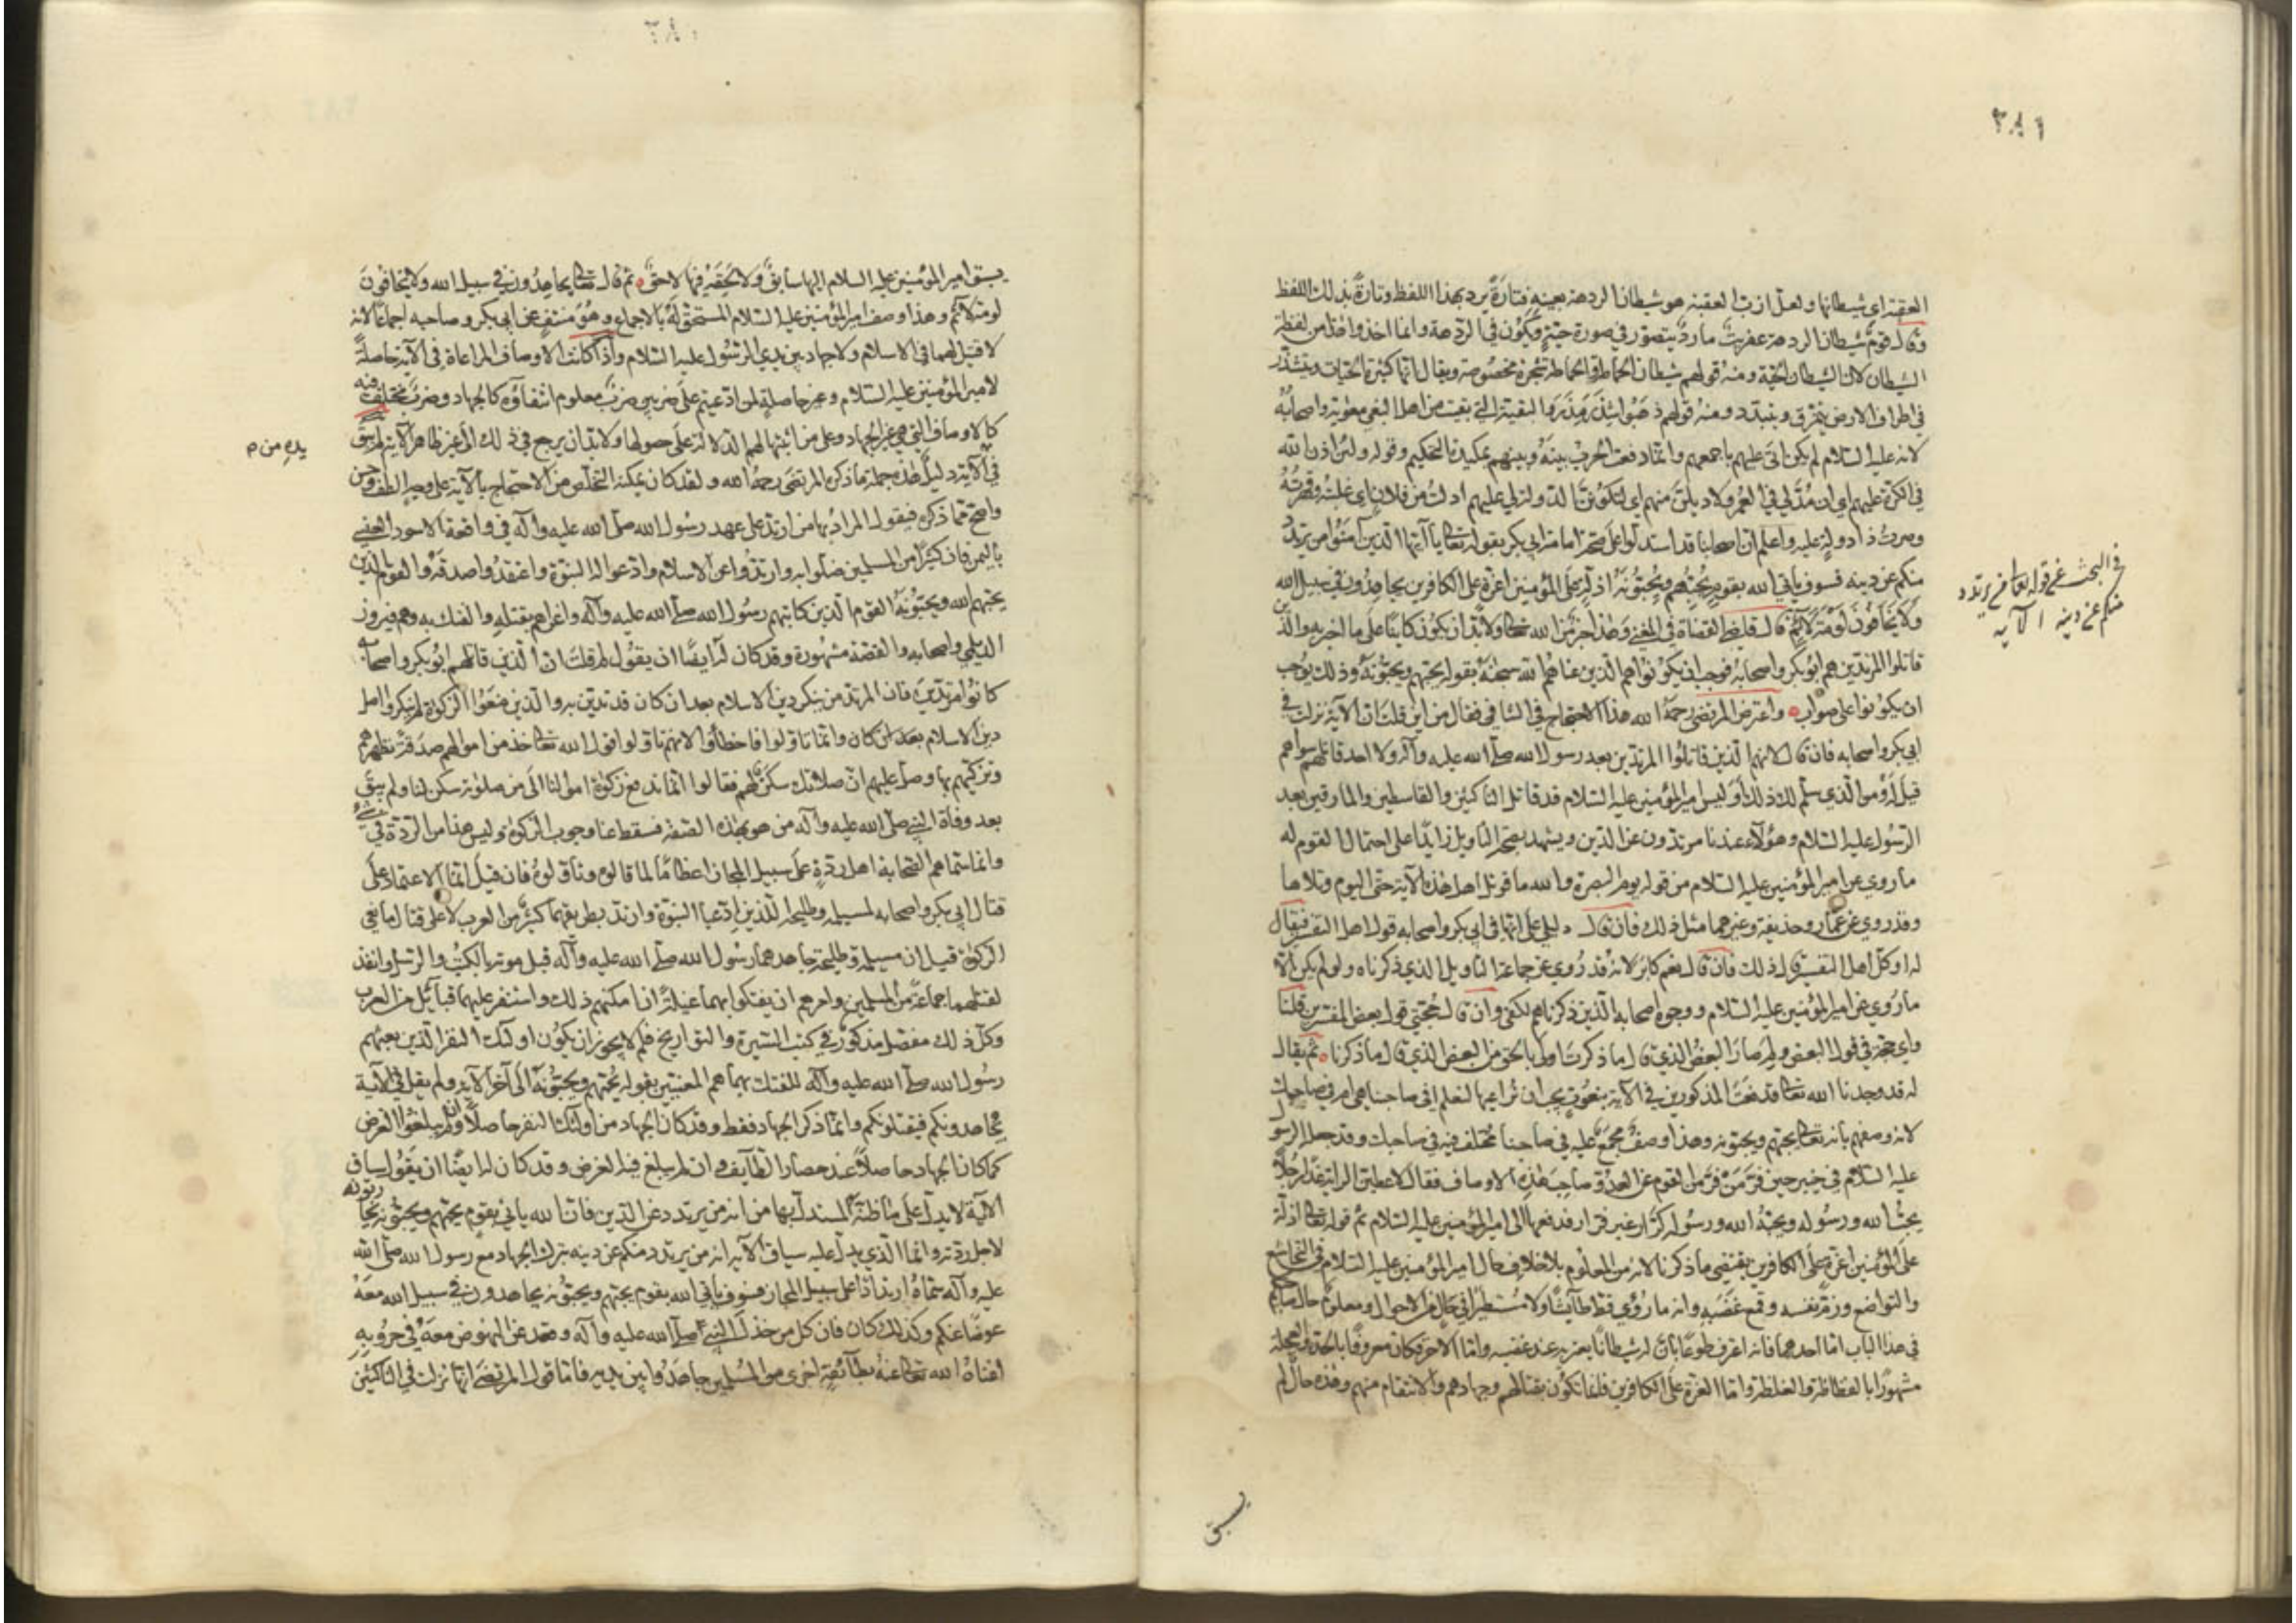 ٣٨١
العقبة اي شيطانها ولعل ازب العقبة هو شيطان الردهة بعينه فتارة يرد بهذا اللفظ وتارة بذلك اللفظ
وقال قوم شيطان الردهة عفريت مارد يتصور في صورة حية ويكون في الردهة وانما اخذوا هذا من لفظة
الشيطان لان الشيطان الحية ومنه قولهم شيطان الحماطة والحماطة شجرة مخصوصة ويقال انها كثيرة الحيات ويتشذر
في اطراف الارض يتمزق ويتبدد ومنه قولهم ذهبوا شذر مذر والبقية التي بقيت من اهل البغي معوية واصحابه
لانه عليه السلام لم يكن اتى عليهم باجمعهم وانما دفعت الحرب بينه وبينهم بمكيدة التحكيم وقوله ولئن اذن الله
في الكرة عليهم اي ان مد لي في العمر لاديلن منهم اي لتكونن الدولة لي عليهم ادلت من فلان اي غلبته وقهرته
وصرت ذا دولة عليه واعلم ان اصحابنا قد استدلوا على صحة امامة ابي بكر بقوله تعالى يا ايها الذين آمنوا من يرتد
منكم عن دينه فسوف ياتي الله بقوم يحبهم ويحبونه اذلة على المؤمنين اعزة على الكافرين يجاهدون في سبيل الله
ولا يخافون لومة لائم قال قاضي القضاة في المغني وهذا خبر من الله تعالى ولا بد ان يكون كاينا على ما اخبر به والذين
قاتلوا المرتدين هم ابو بكر واصحابه فوجب ان يكونوا هم الذين عناهم الله سبحانه بقوله يحبهم ويحبونه وذلك يوجب
ان يكونوا على صواب واعترض المرتضى رحمه الله هذا الاحتجاج في الشافي فقال من اين قلت ان الآية نزلت في
ابي بكر واصحابه فان قال لانهم الذين قاتلوا المرتدين بعد رسول الله صلى الله عليه وآله ولا احد قاتلهم سواهم
قيل له ومن الذي سلم لك ذلك أوليس امير المؤمنين عليه السلام قد قاتل الناكثين والقاسطين والمارقين بعد
الرسول عليه السلام وهؤلاء عندنا مرتدون عن الدين ويشهد بصحة التاويل زايدا على احتمال القوم له
ما روي عن امير المؤمنين عليه السلام من قوله يوم البصرة والله ما قوتل اهل هذه الآية حتى اليوم وتلاها
وقد روي عن عمار وحذيفة وغيرهما مثل ذلك فان قال دليلي على انها في ابي بكر واصحابه قول اهل التفسير فيقال
له او كل اهل التفسير قال ذلك فان قال نعم كابر لانه قد روي عن جماعة التاويل الذي ذكرناه ولو لم يكن الا
ما روي عن امير المؤمنين عليه السلام ووجوه اصحابه الذين ذكرناهم لكفى وان قال حجتي قول بعض المفسرين قلنا
واي حجة في قول البعض ولم صار البعض الذي قال ما ذكرت اولى بالحق من البعض الذي قال ما ذكرنا ثم يقال
له قد وجدنا الله تعالى قد نعت المذكورين في الآية بنعوت يجب ان نراعيها لنعلم افي صاحبنا هي ام في صاحبك
لانه وصفهم بانه تعالى يحبهم ويحبونه وهذا وصف مجمع عليه في صاحبنا مختلف فيه في صاحبك وقد جعله الرسول
عليه السلام في خيبر حين فر من فر من القوم عن العدو صاحب هذه الاوصاف فقال لاعطين الراية غدا رجلا
يحب الله ورسوله ويحبه الله ورسوله كرار غير فرار فدفعها الى امير المؤمنين عليه السلام ثم قوله تعالى اذلة
على المؤمنين اعزة على الكافرين يقتضي ما ذكرنا لانه من المعلوم بلا خلاف حال امير المؤمنين عليه السلام في التخاشع
والتواضع وذم نفسه وقمع غضبه وانه ما رؤي قط طائشا ولا مستطيرا في حال من الاحوال ومعلوم حال صاحبهم
في هذا الباب اما احدهما فانه اعترف طوعا بان له شيطانا يعتريه عند غضبه واما الآخر فكان معروفا بالحدة والعجلة
مشهورا بالفظاظة والغلظة واما العزة على الكافرين فانما تكون بقتالهم وجهادهم والانتقام منهم وهذه حال لم
يسبق
في البحث عن قوله تعالى من يرتد
منكم عن دينه الآية
يسبق امير المؤمنين عليه السلام اليها سابق ولا لحقه فيها لاحق ثم قال تعالى يجاهدون في سبيل الله ولا يخافون
لومة لائم وهذا وصف امير المؤمنين عليه السلام المستحق له بالاجماع وهو منتف عن ابي بكر وصاحبه اجماعا لانه
لا قتيل لهما في الاسلام ولا جهاد بين يدي الرسول عليه السلام واذا كانت الاوصاف المراعاة في الآية حاصلة
لامير المؤمنين عليه السلام وغير حاصلة لمن ادعيتم على ضربين ضرب معلوم انتفاؤه كالجهاد وضرب مختلف فيه
كالاوصاف التي هي غير الجهاد وعلى من اثبتها لهم الدلالة على حصولها ولا بد ان يرجع في ذلك الى غير ظاهر الآية لم يبق
في الآية دليل هذه جملة ما ذكره المرتضى رحمه الله ولقد كان يمكنه التخلص من الاحتجاج بالآية على وجه الطف واحسن
واصح مما ذكره فيقول المراد بها من ارتد على عهد رسول الله صلى الله عليه وآله في واقعة الاسود العنسي
باليمن فان كثيرا من المسلمين ضلوا به وارتدوا عن الاسلام وادعوا له النبوة واعتقدوا صدقه والقوم الذين
يحبهم الله ويحبونه القوم الذين كاتبهم رسول الله صلى الله عليه وآله واغراهم بقتله والفتك به وهم فيروز
الديلمي واصحابه والقصة مشهورة وقد كان له ايضا ان يقول لم قلت ان الذين قاتلهم ابو بكر واصحابه
كانوا مرتدين فان المرتد من ينكر دين الاسلام بعد ان كان قد تدين به والذين منعوا الزكوة لم ينكروا اصل
دين الاسلام بعد ان كان وانما تاولوا فاخطأوا لانهم تاولوا قول الله تعالى خذ من اموالهم صدقة تطهرهم
وتزكيهم بها وصل عليهم ان صلاتك سكن لهم فقالوا انما ندفع زكوة اموالنا الى من صلوته سكن لنا ولم يبق
بعد وفاة النبي صلى الله عليه وآله من هو بهذه الصفة فسقط عنا وجوب الزكوة وليس هذا من الردة في شيء
وانما سماهم الصحابة اهل ردة على سبيل المجاز اعظاما لما قالوه وتأولوه فان قيل انما الاعتماد على
قتال ابي بكر واصحابه لمسيلمة وطليحة اللذين ادعيا النبوة وارتد بطريقهما كثير من العرب لا على قتال مانعي
الزكوة قيل ان مسيلمة وطليحة جاهدهما رسول الله صلى الله عليه وآله قبل موته بالكتب والرسل وانفذ
لقتلهما جماعة من المسلمين وامرهم ان يفتكوا بهما غيلة ان امكنهم ذلك واستنفر عليهما قبائل من العرب
وكل ذلك مفصل مذكور في كتب السيرة والتواريخ فلم لا يجوز ان يكون اولئك النفر الذين بعثهم
رسول الله صلى الله عليه وآله للفتك بهما هم المعنيين بقوله يحبهم ويحبونه الى آخر الآية ولم يقل في الآية
يجاهدونكم فيقتلونكم وانما ذكر الجهاد فقط وقد كان الجهاد من اولئك النفر حاصلا وان لم يبلغوا الغرض
كما كان الجهاد حاصلا عند حصار الطايف وان لم يبلغ فيه الغرض وقد كان له ايضا ان يقول سياق
الآية لا يدل على ما ظنه المستدل بها من انه من يرتدد عن الدين فان الله ياتي بقوم يحبهم ويحبونه يحاربونه
لاجل ردته وانما الذي يدل عليه سياق الآية انه من يرتدد منكم عن دينه بترك الجهاد مع رسول الله صلى الله
عليه وآله سماه ارتدادا على سبيل المجاز فسوف ياتي الله بقوم يحبهم ويحبونه يجاهدون في سبيل الله معه
عوضا عنكم وكذلك كان فان كل من خذل النبي صلى الله عليه وآله وقعد عن النهوض معه في حروبه
اغناه الله تعالى عنه بطائفة اخرى من المسلمين جاهدوا بين يديه فاما قول المرتضى انها نزلت في الناكثين